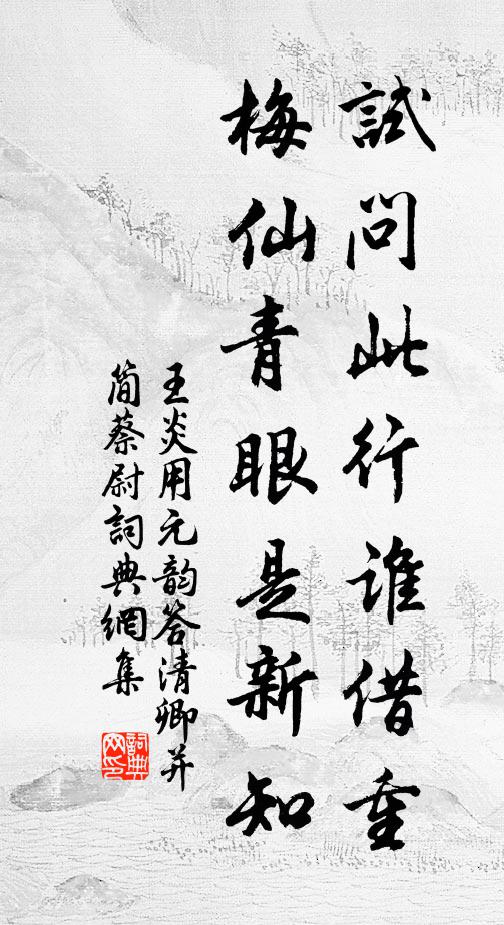 試問此行誰借重
梅仙青眼是新知
王炎用元韵答清卿并
简蔡尉詞典網集
詞典
网印